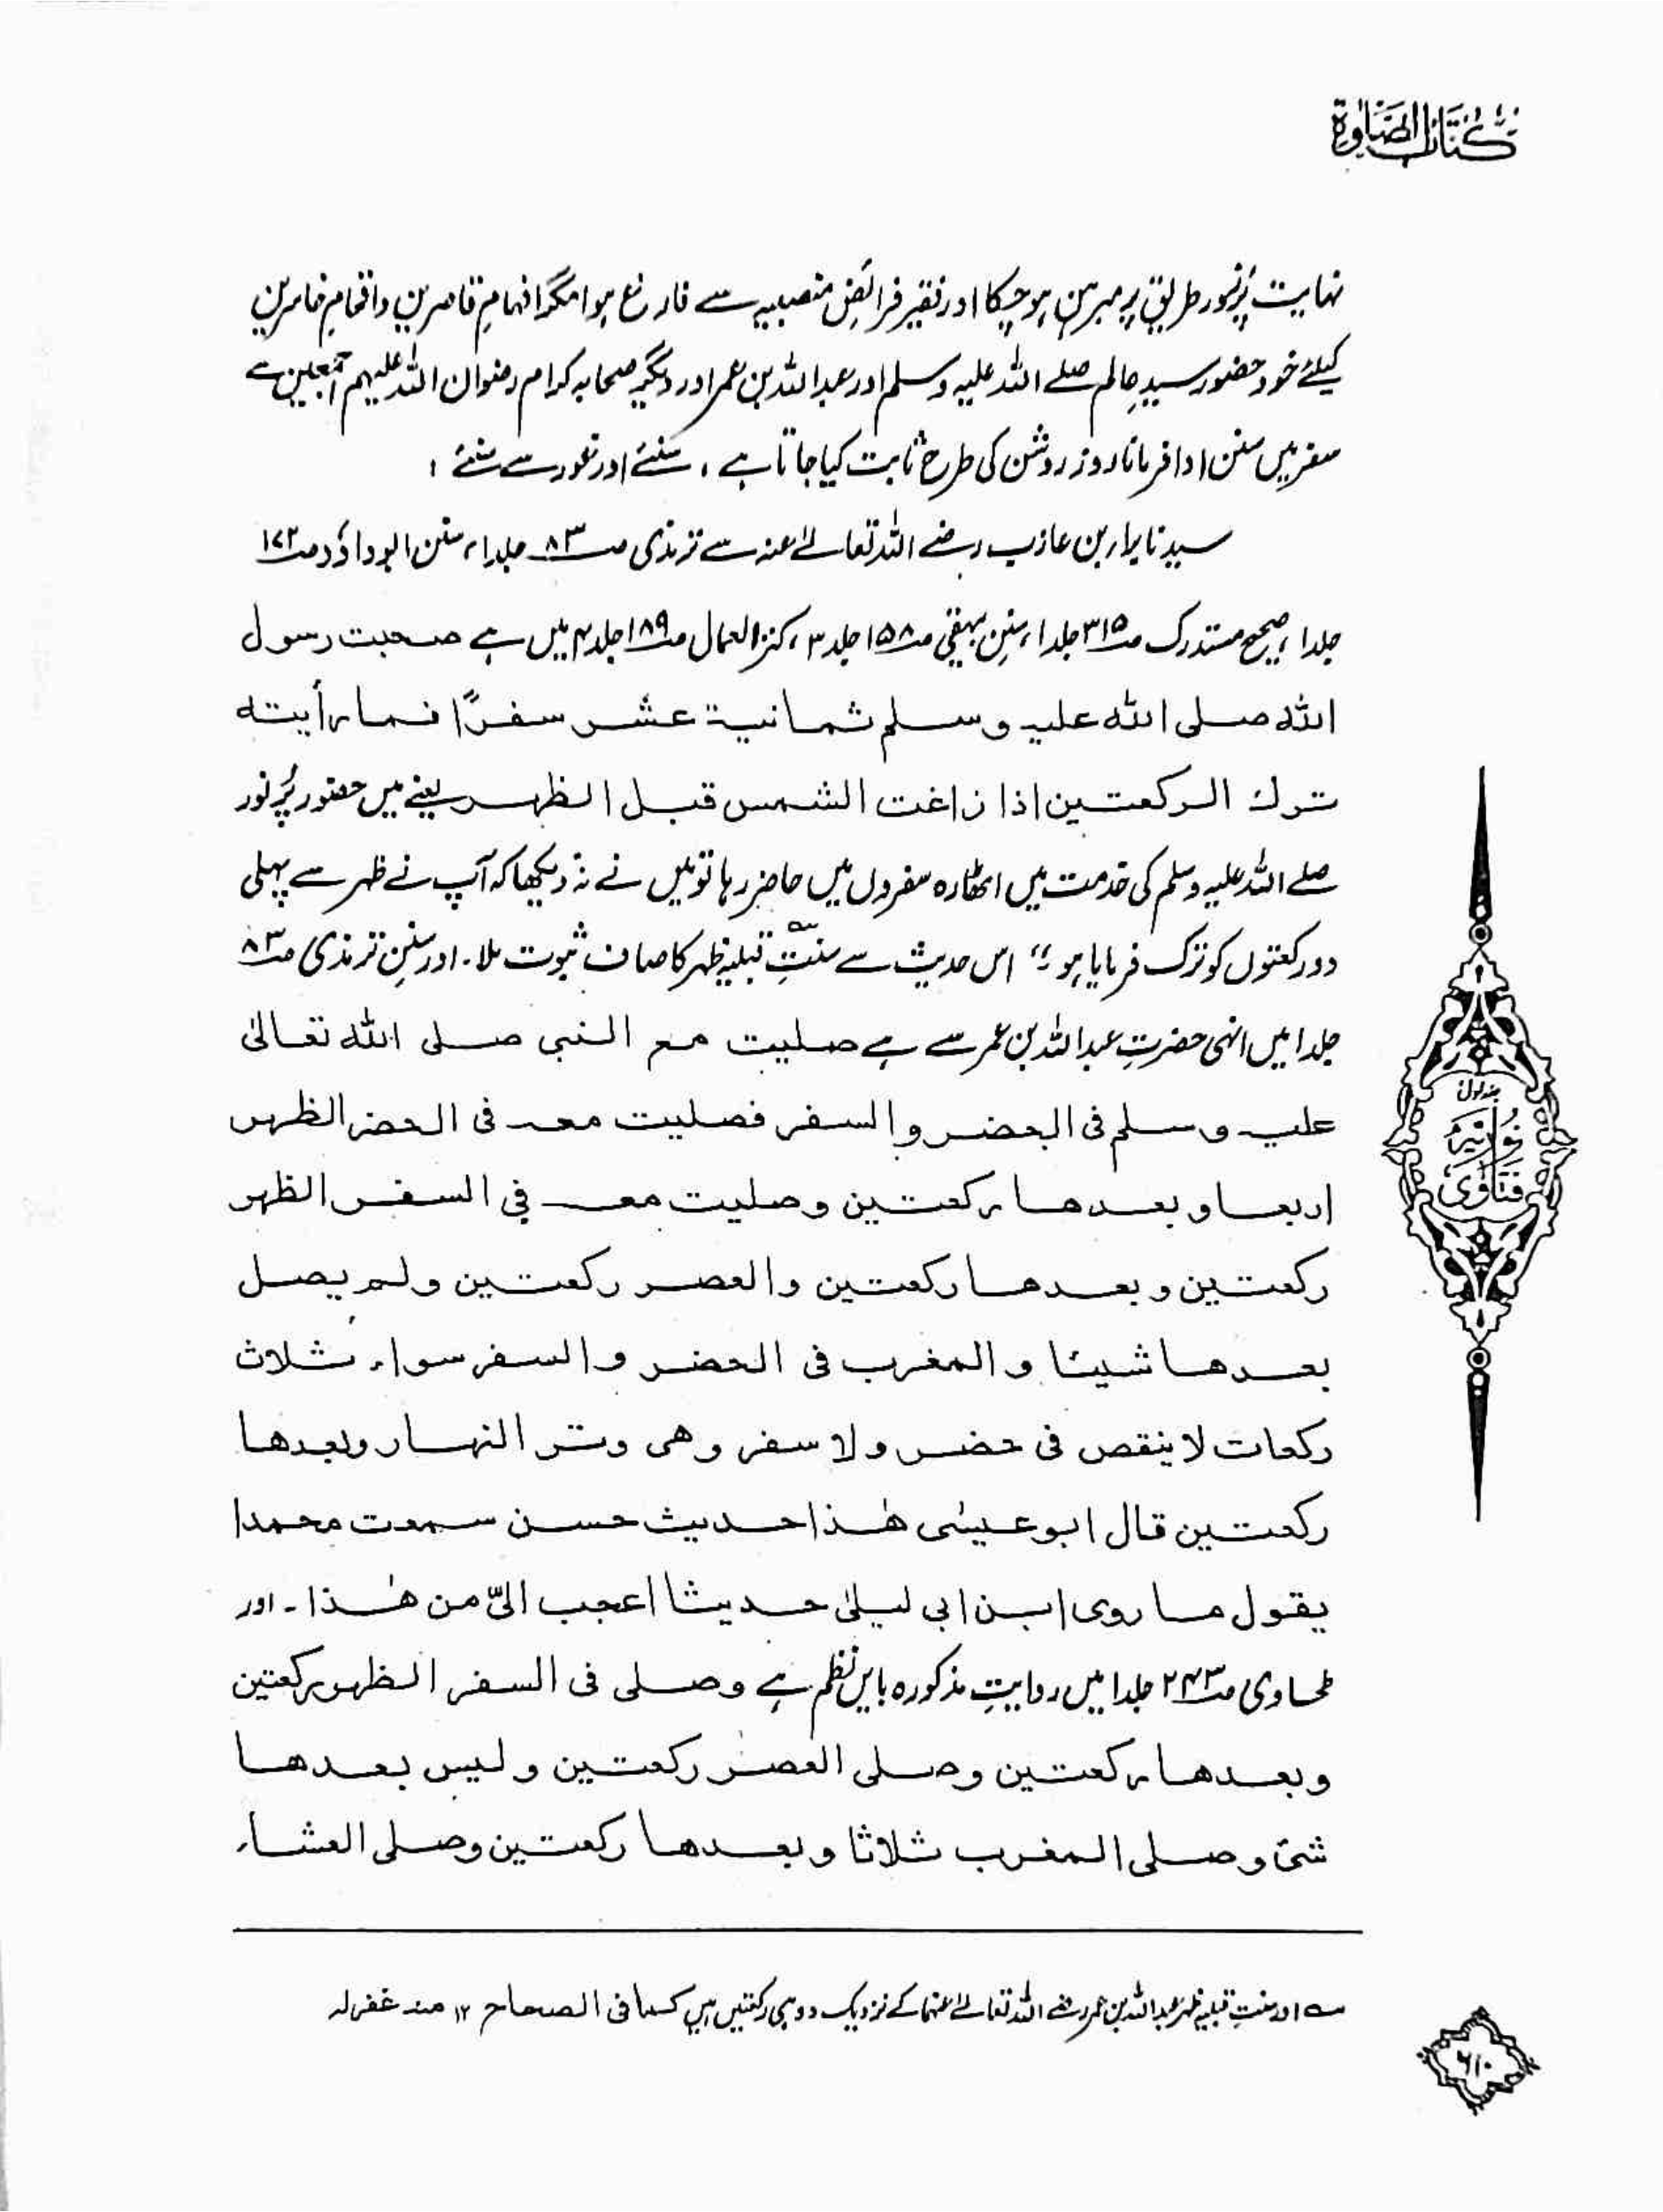 كتاب الصلوة
نہایت پُرنور طریق پر مبرہن ہو چکا اور فقیر فرائضِ منصبیہ سے فارغ ہوا مگر افہامِ قاصرین وافحامِ خاسرین
کیلئے خود حضور سیدِ عالم صلے اللہ علیہ وسلم اور عبد اللہ بن عمر اور دیگر صحابہ کرام رضوان اللہ علیہم اجمعین سے
سفر میں سنن ادا فرمانا روز روشن کی طرح ثابت کیا جاتا ہے ، سنئے اور غور سے سنئے :
سیدنا براء بن عازب رضے اللہ تعالےٰ عنہ سے ترمذی صـ۸۳ جلد۱، سنن ابوداؤد صـ۱۷۲
جلد۱، صحیح مستدرک صـ۳۱۵ جلد۱، سننِ بیہقی صـ۱۵۸ جلد۳، کنز العمال صـ۱۸۹ جلد۴ میں ہے صحبت رسول
الله صلى الله عليه وسلم ثمانية عشر سفرًا فما رأيته
ترك الركعتين اذا زاغت الشمس قبل الظهر یعنے میں حضور پُرنور
صلے اللہ علیہ وسلم کی خدمت میں اٹھارہ سفروں میں حاضر رہا تو میں نے نہ دیکھا کہ آپ نے ظہر سے پہلی
دو رکعتوں کو ترک فرمایا ہو ؛؛ اس حدیث سے سنّتِ قبلیہ ظہر کا صاف ثبوت ملا۔ اور سننِ ترمذی صـ۸۳
جلد۱ میں انہی حضرتِ عبد اللہ بن عمر سے ہے صليت مع النبى صلى الله تعالىٰ
عليه وسلم فى الحضر والسفر فصليت معه فى الحضر الظهر
اربعا وبعدها ركعتين وصليت معه فى السفر الظهر
ركعتين وبعدها ركعتين والعصر ركعتين ولم يصل
بعدها شيئا والمغرب فى الحضر والسفر سواء ثلاث
ركعات لا ينقص فى حضر ولا سفر وهى وتر النهار وبعدها
ركعتين قال ابو عيسٰى هٰذا حديث حسن سمعت محمدا
يقول ما روى ابن ابى ليلىٰ حديثا اعجب الىّ من هٰذا۔ اور
طحاوی صـ۲۴۳ جلد۱ میں روایتِ مذکورہ بایں نظم ہے وصلى فى السفر الظهر ركعتين
وبعدها ركعتين وصلى العصر ركعتين وليس بعدها
شئ وصلى المغرب ثلاثا وبعدها ركعتين وصلى العشاء
جلد اول
نُورِیَّہ
فتاوٰی
سہ اور سنتِ قبلیہ ظہر عبد اللہ بن عمر رضے اللہ تعالےٰ عنہما کے نزدیک دو ہی رکعتیں ہیں كما فى الصحاح ۱۲ منه غفرله
۶۱۰